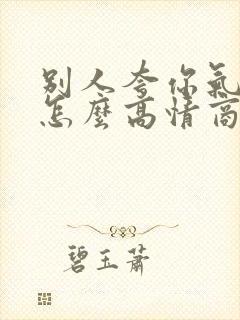 别人夸你氣
怎麼高情商
碧玉蕭